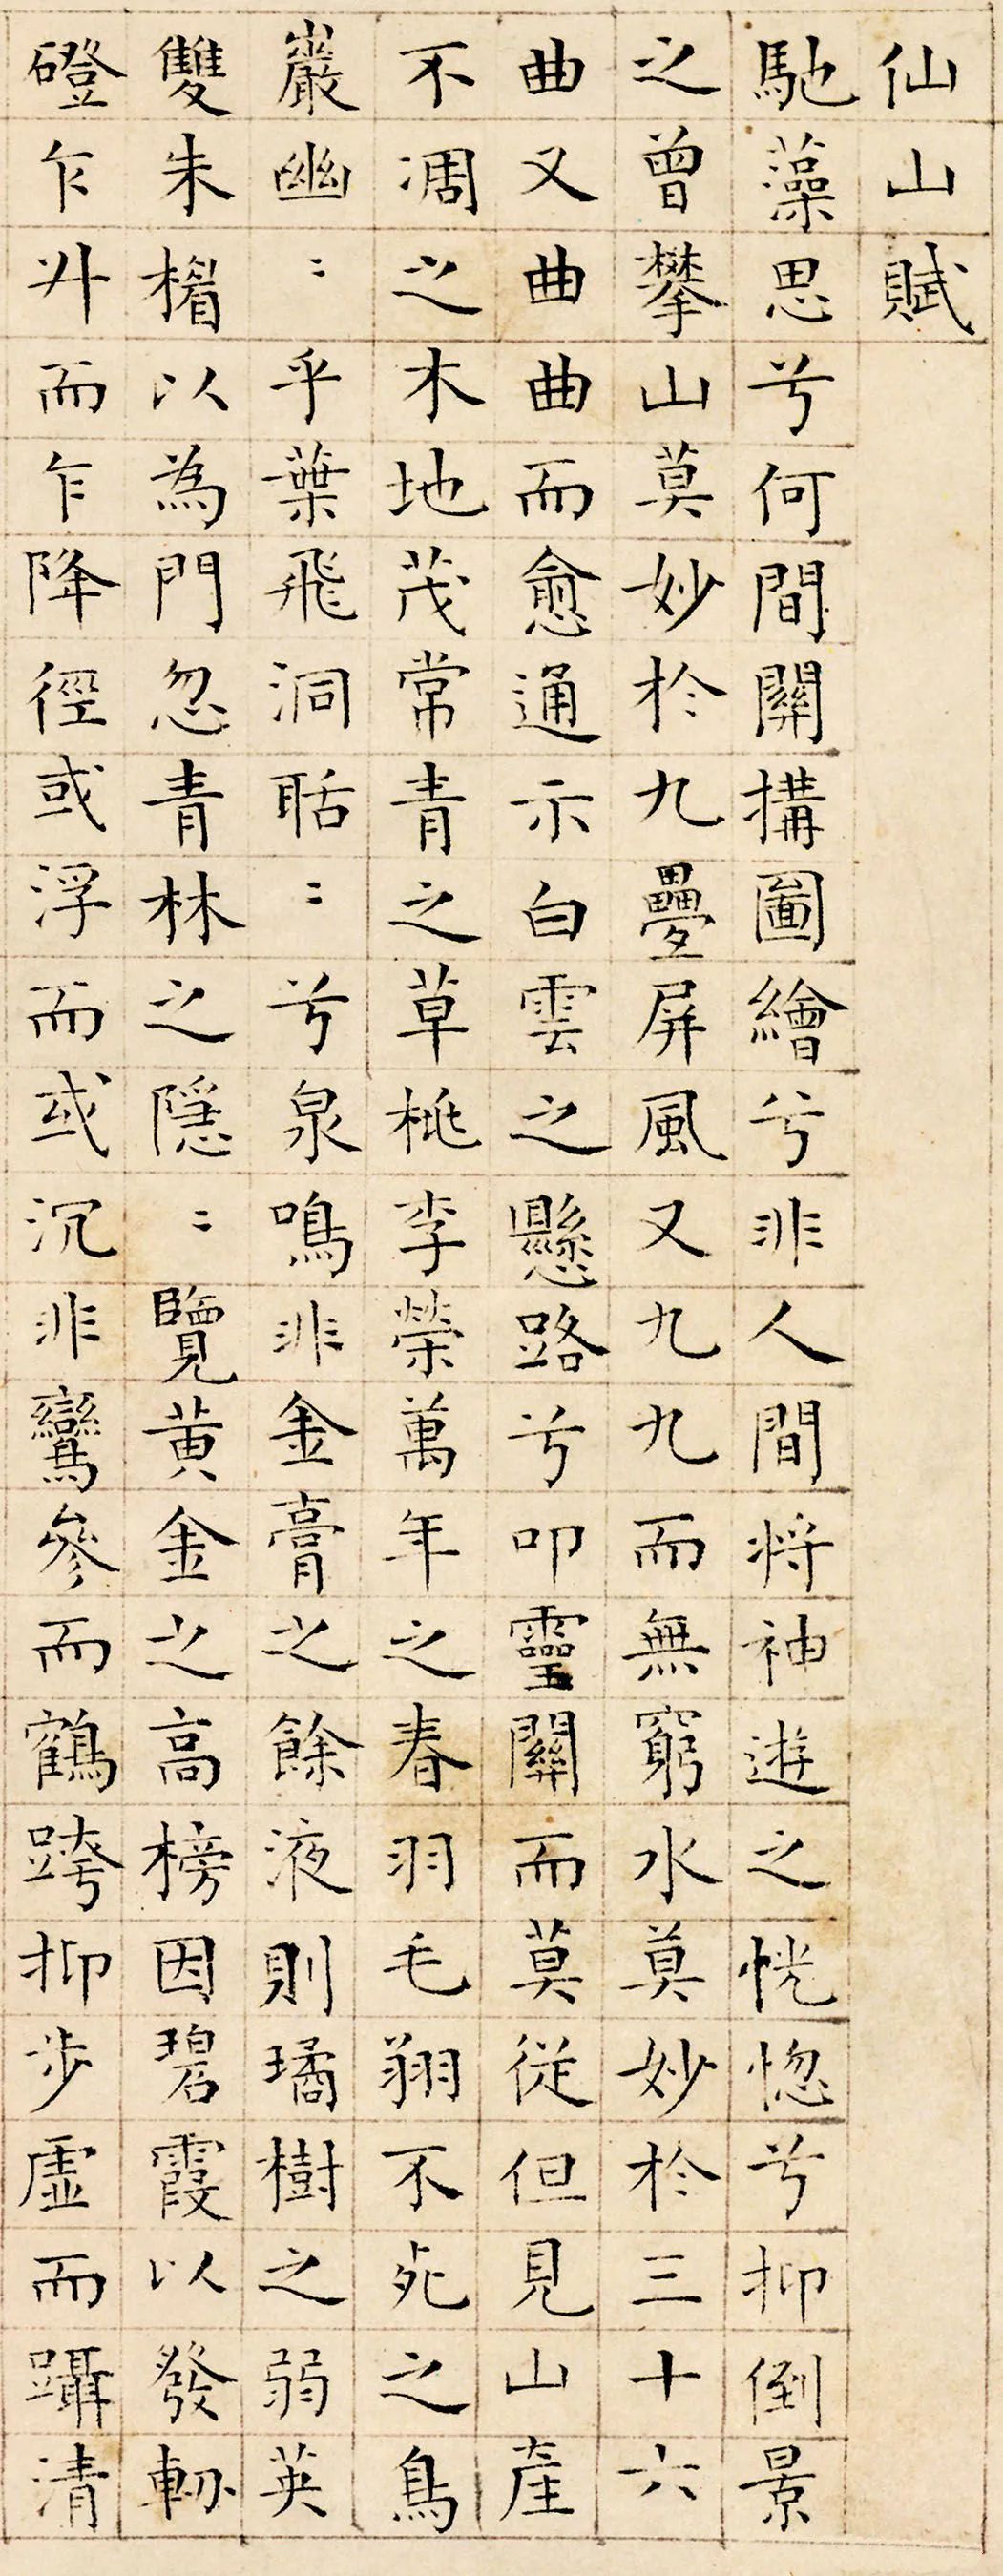 仙山賦
馳藻思兮何間關搆圖繪兮非人間將神遊之恍惚兮抑倒景
之曾攀山莫妙於九疊屏風又九九而無窮水莫妙於三十六
曲又曲曲而愈通示白雲之懸路兮叩靈關而莫從但見山產
不凋之木地茂常青之草桃李榮萬年之春羽毛翔不死之鳥
巖幽〻乎葉飛洞聒〻兮泉鳴非金膏之餘液則璚樹之弱英
雙朱楣以為門忽青林之隱〻覽黃金之高榜因碧霞以發軔
磴乍升而乍降徑或浮而或沉非鸞參而鶴跨抑步虛而躡清